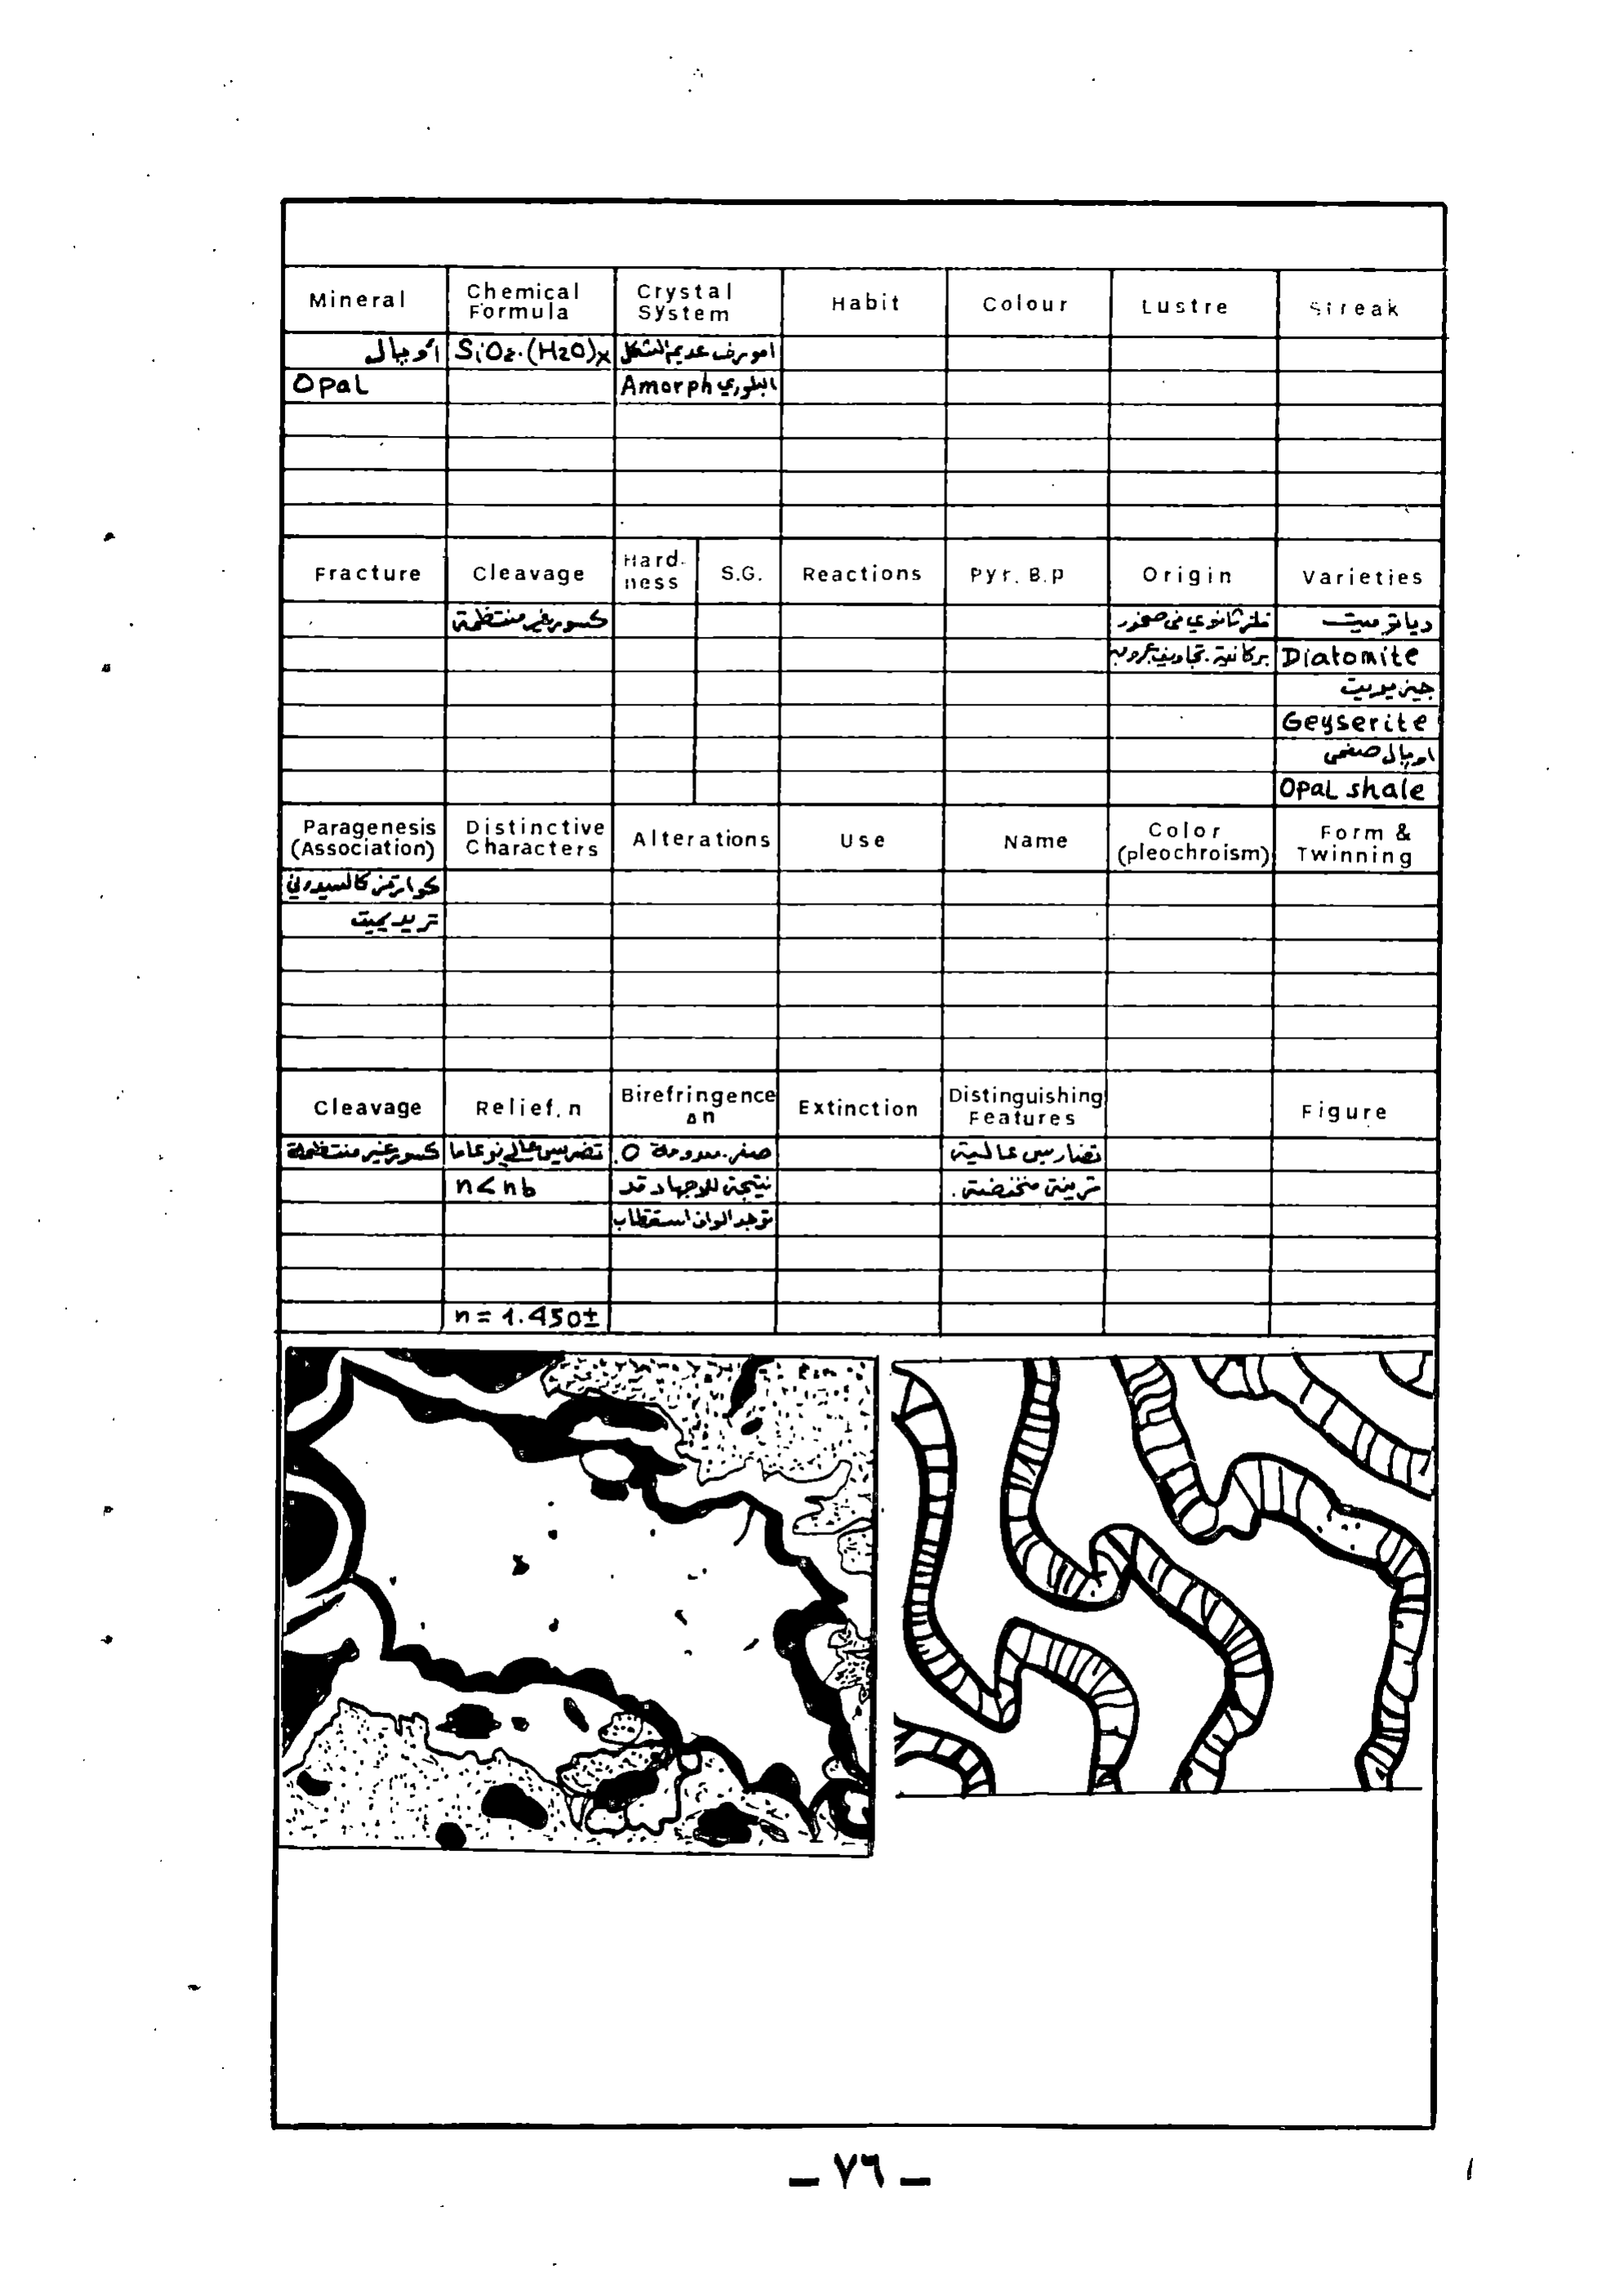 Mineral Chemical Formula Crystal System Habit Colour Lustre Streak
أوبال SiO2.(H2O)x امورف عديم الشكل
Opal Amorph البلوري
Fracture Cleavage Hard-ness S.G. Reactions Pyr. B.p Origin Varieties
كسور غير منتظمة فلز ثانوي في صخور دياتوميت
بركانية. تجاويف Diatomite
جيزيريت
Geyserite
اوبال صفحي
Opal shale
Paragenesis (Association) Distinctive Characters Alterations Use Name Color (pleochroism) Form & Twinning
كوارتز كالسيدوني
تريديميت
Cleavage Relief, n Birefringence Δn Extinction Distinguishing Features Figure
كسور غير منتظمة تضريس عالي نوعاما صفر. معدومة 0. تضاريس عالية
n<nb نتيجة للاجهاد قد قرينة منخفضة.
توجد الوان استقطاب
n = 1.450±
– ٧٦ –